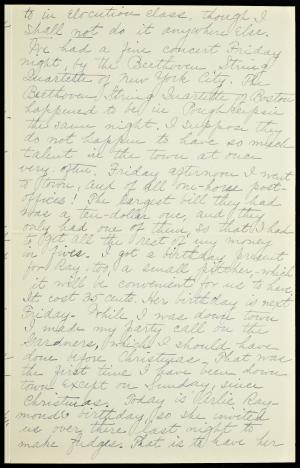 to in elocution class, though I
shall not do it anywhere else.
We had a fine concert Friday
night, by the Beethoven String
Quartette of New York City. The
Beethoven String Quartette of Boston
happened to be in Poughkeepsie
the same night. I suppose they
do not happen to have so much
talent in the town at once
very often. Friday afternoon I went
to town, and of all one-horse post-
offices! The largest bill they had
was a ten-dollar one, and they
only had one of them, so that I had
to get all the rest of my money
in fives. I got a birthday present
for Ray, too, a small pitcher, which
it will be convenient for us to have.
It cost 35 cents. Her birthday is next
Friday. While I was down town
I made my party call on the
Gardners, which I should have
done before Christmas. That was
the first time I have been down
town except on Sunday, since
Christmas. Today is Arlie Ray-
mond's birthday, so she invited
us over there last night to
make fudges. That is to have her